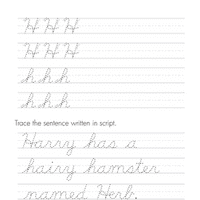 H H H
H H H
h h h
h h h
Trace the sentence written in script.
Harry has a
hairy hamster
named Herb.